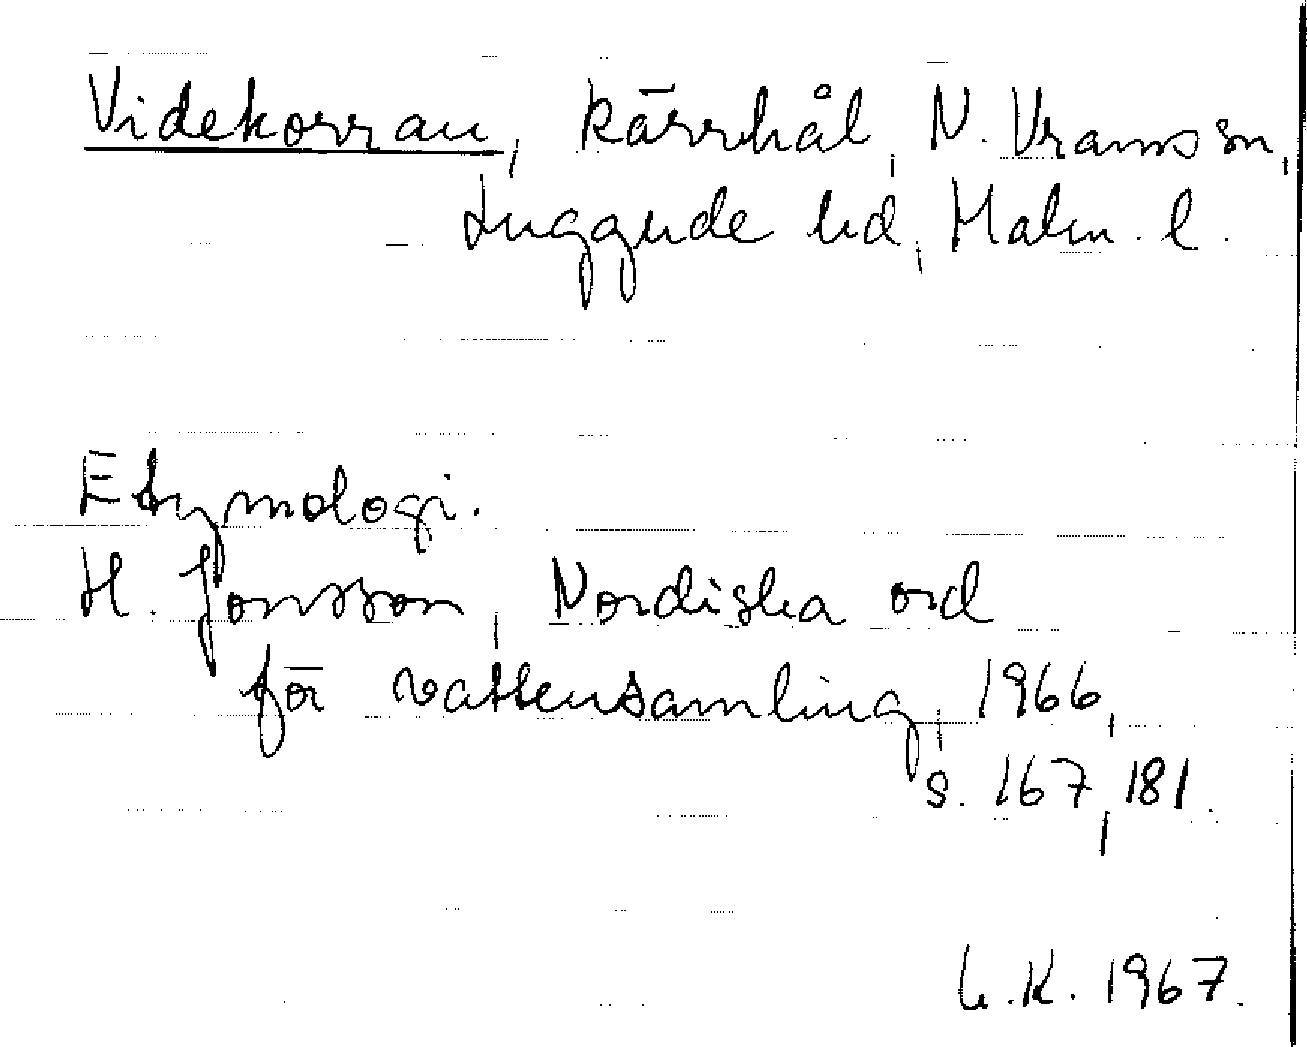 Videkorran, kärrhål, N. Vrams sn,
Luggude hd, Malm. l.
Etymologi.
H. Jonsson, Nordiska ord
för vattensamling, 1966,
s. 167, 181.
L.K. 1967.